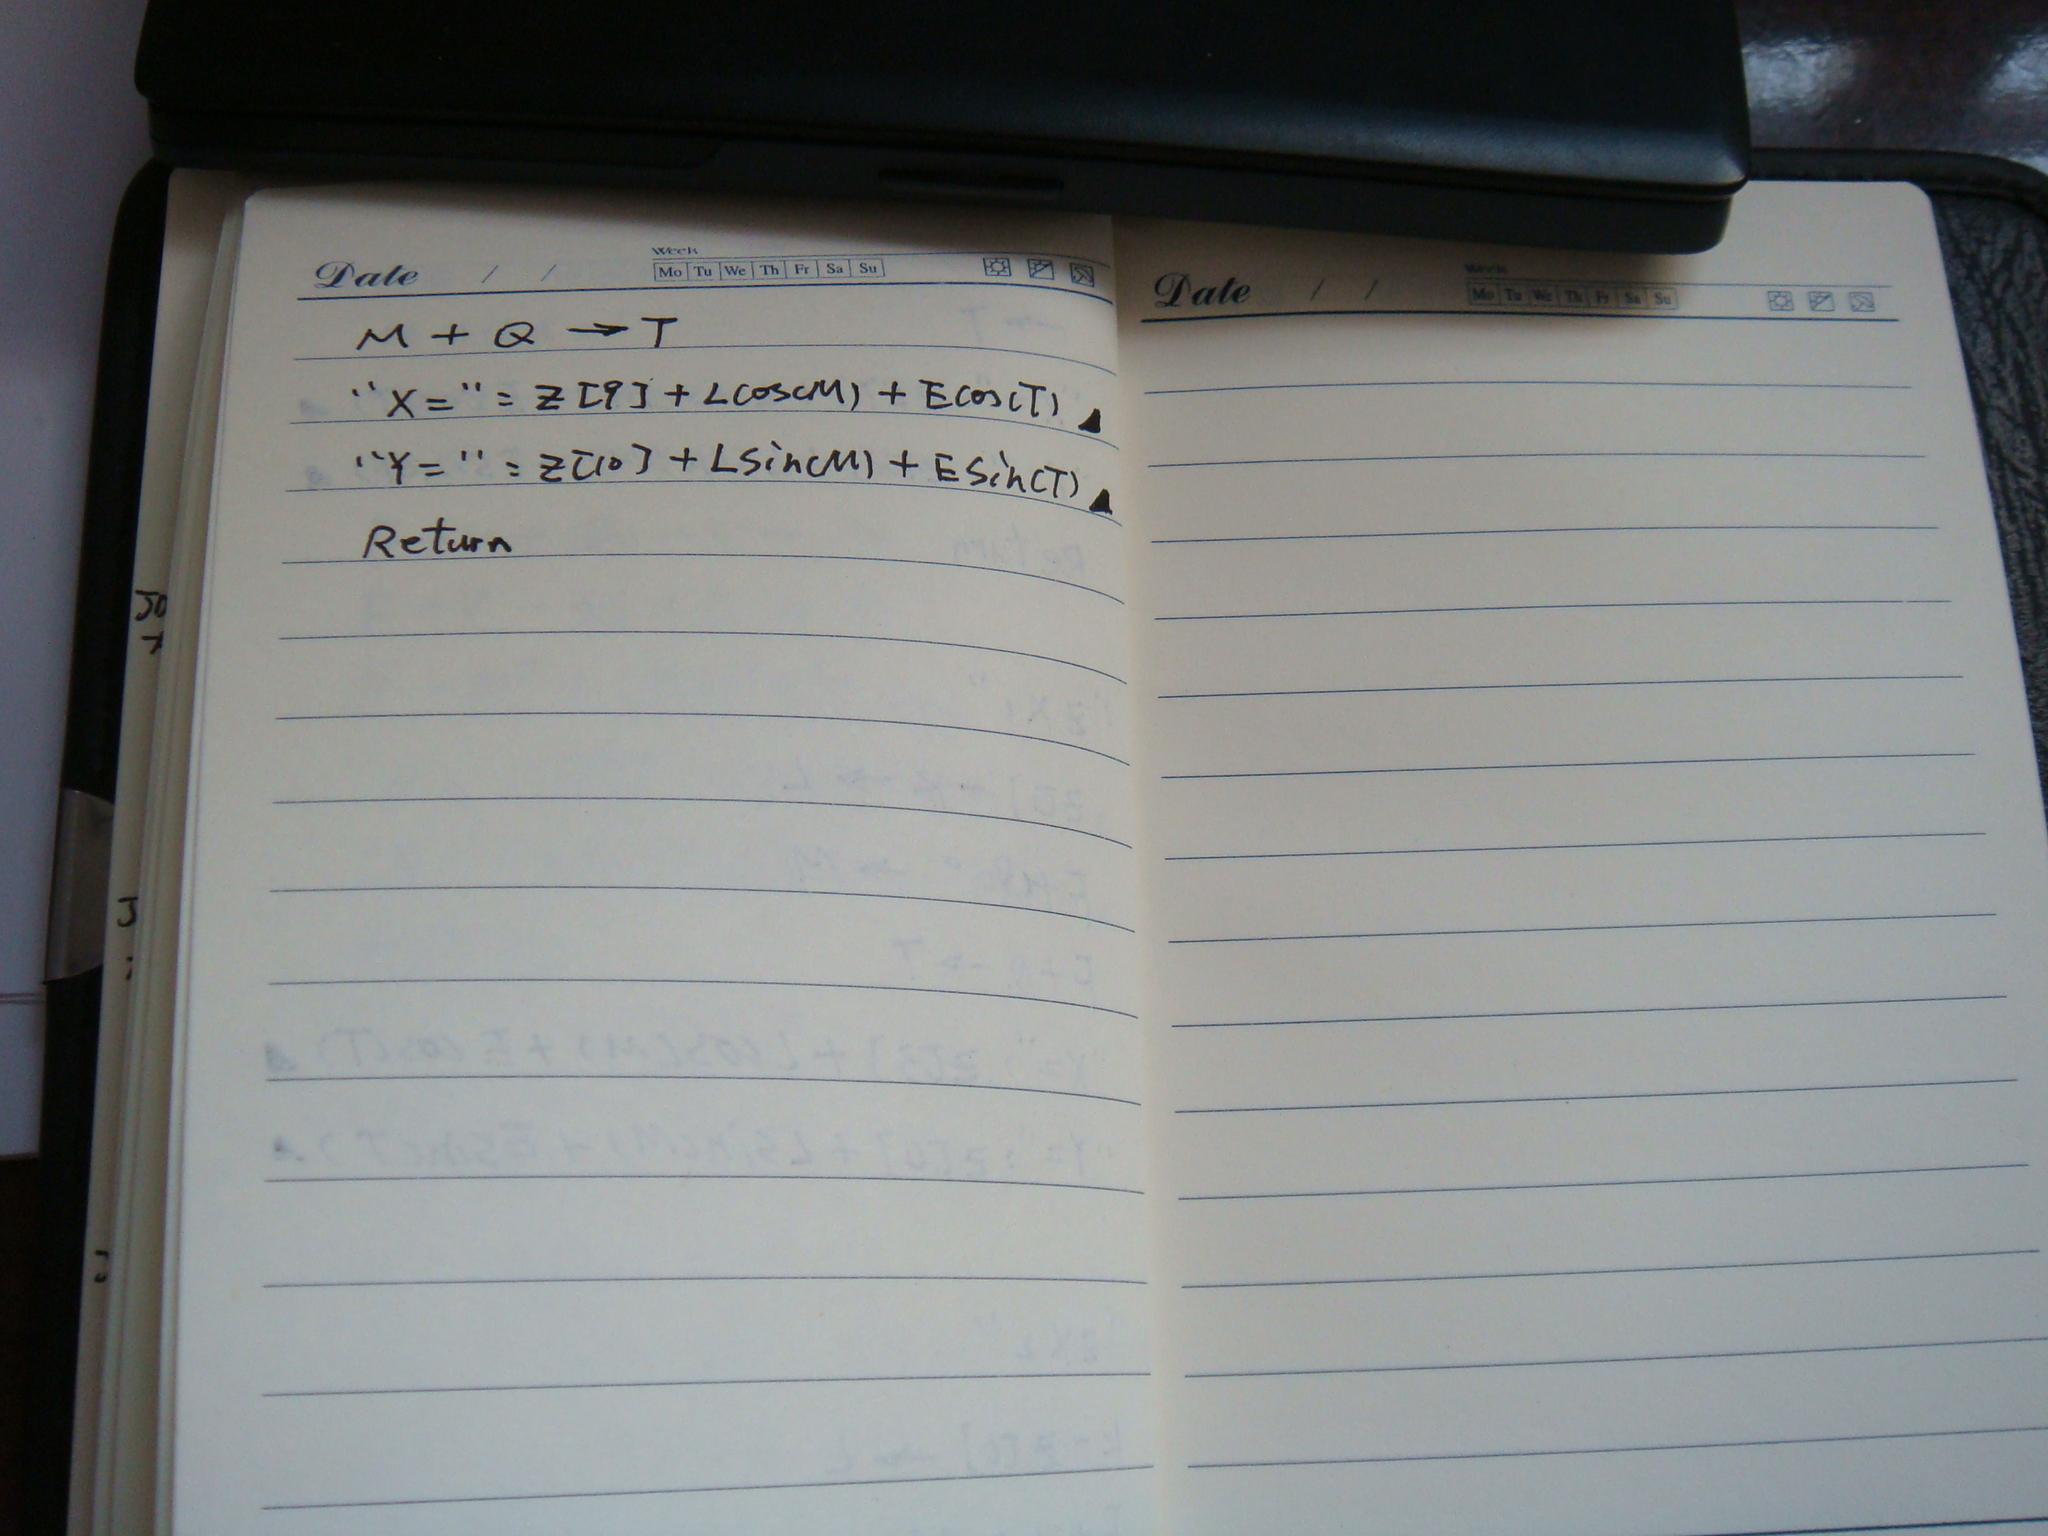 Date / /
Week
Mo Tu We Th Fr Sa Su
M + Q → T
"X=" : Z[9] + Lcos(M) + Ecos(T)◢
"Y=" : Z[10] + Lsin(M) + Esin(T)◢
Return
Date / /
Week
Mo Tu We Th Fr Sa Su